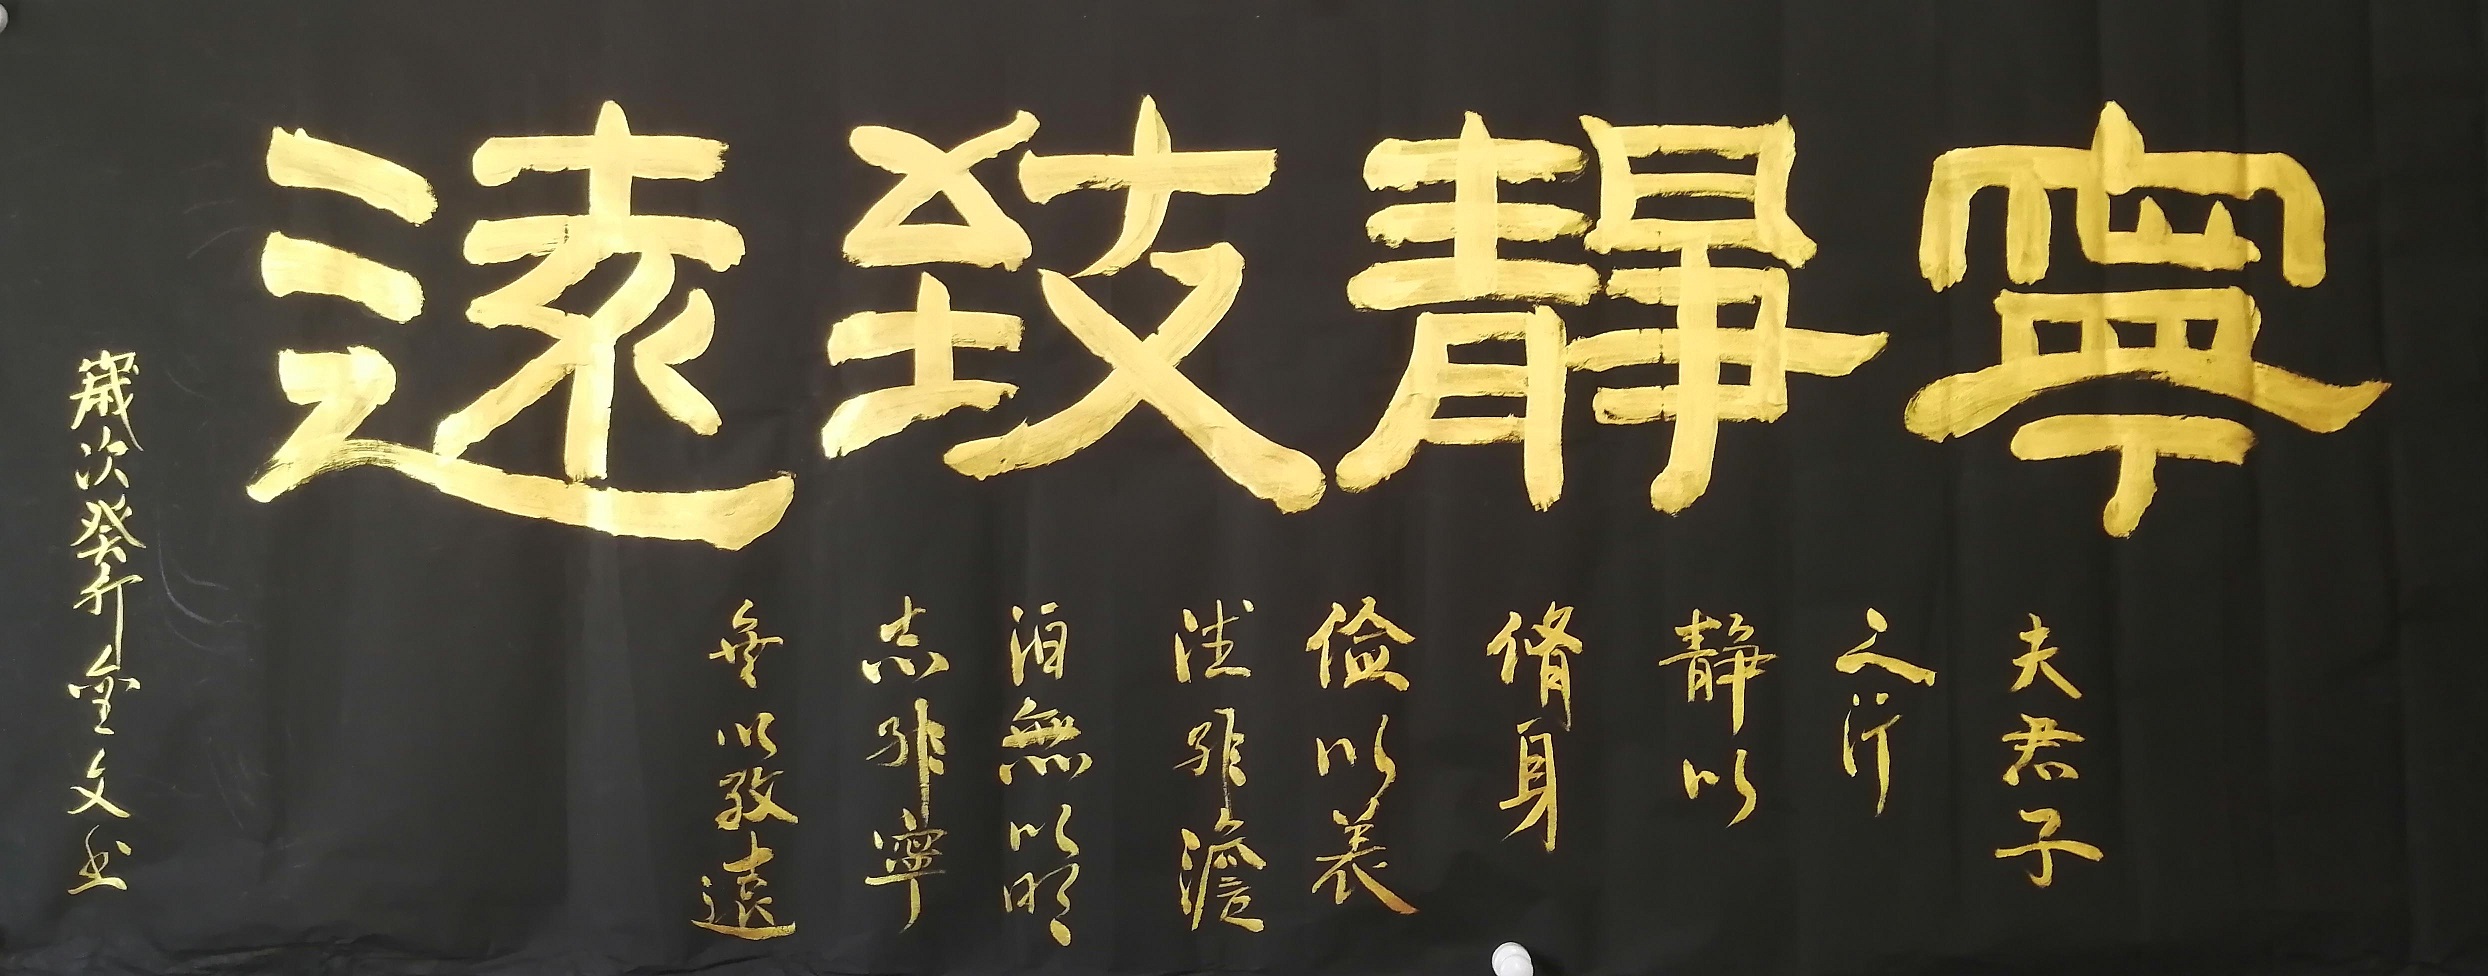 寧靜致遠
夫君子
之行
静以
脩身
儉以养
德非澹
泊無以明
志非寧
無以致遠
歲次癸卯金文书